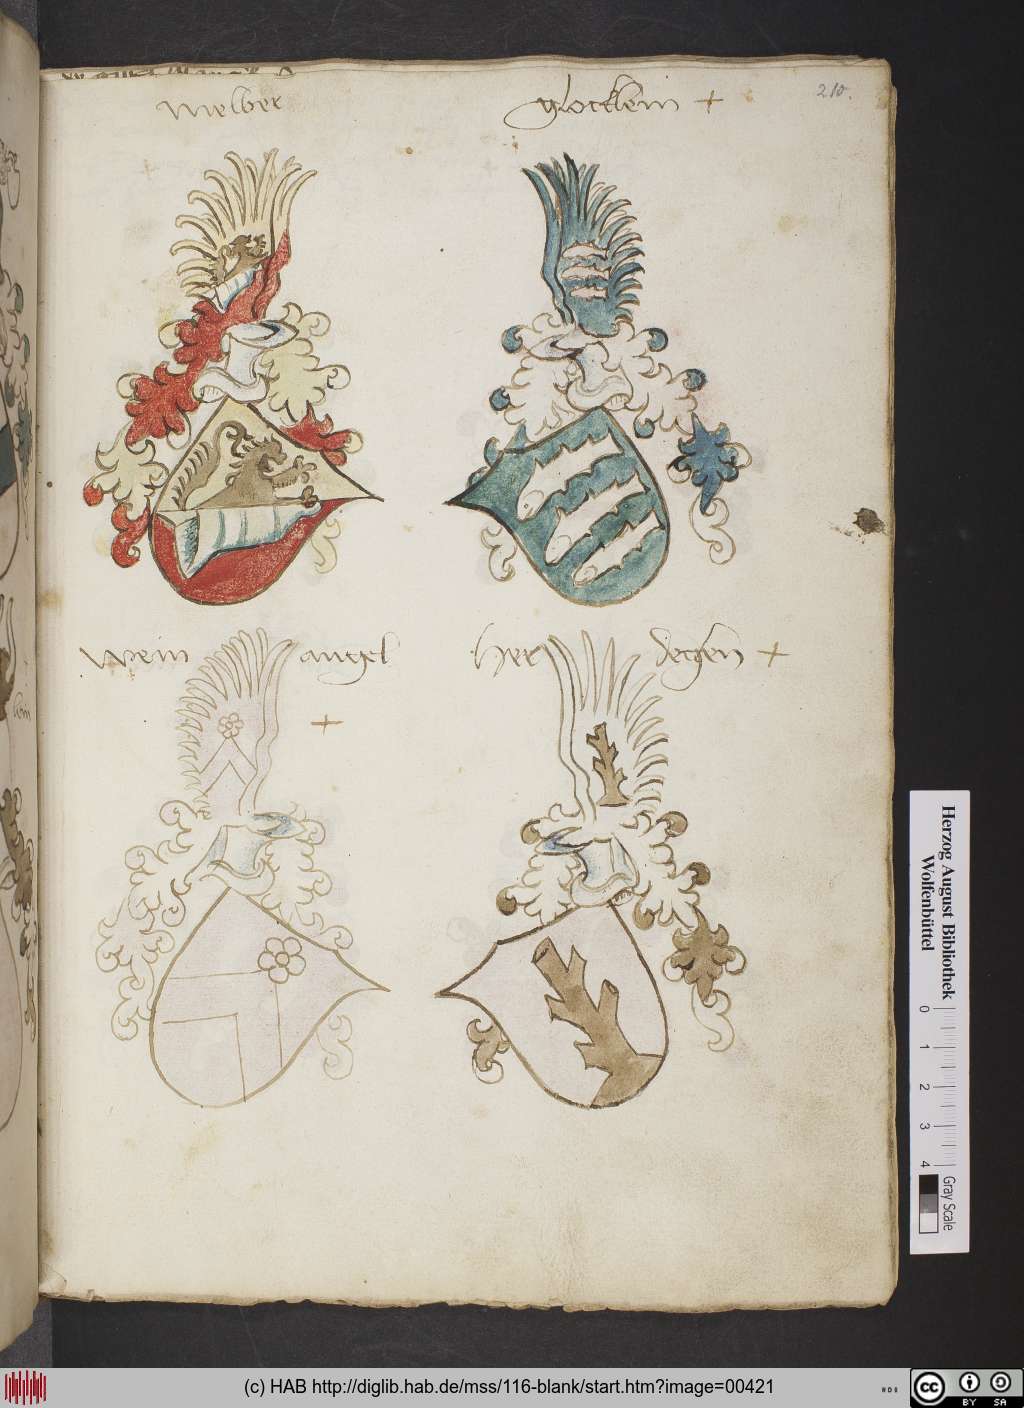 melber
glocklein +
210.
Wein angel
+
Her degen +
Herzog August Bibliothek
Wolfenbüttel
0 1 2 3 4
Gray Scale
(c) HAB http://diglib.hab.de/mss/116-blank/start.htm?image=00421
cc BY SA